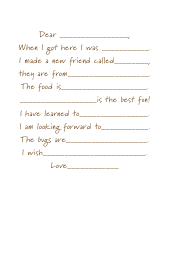 Dear ____________________,
When I got here I was ______________.
I made a new friend called__________,
they are from________________________.
The food is_________________________.
______________________is the best fun!
I have learned to____________________.
I am looking forward to______________.
The bugs are________________________.
I wish______________________________.
Love_______________